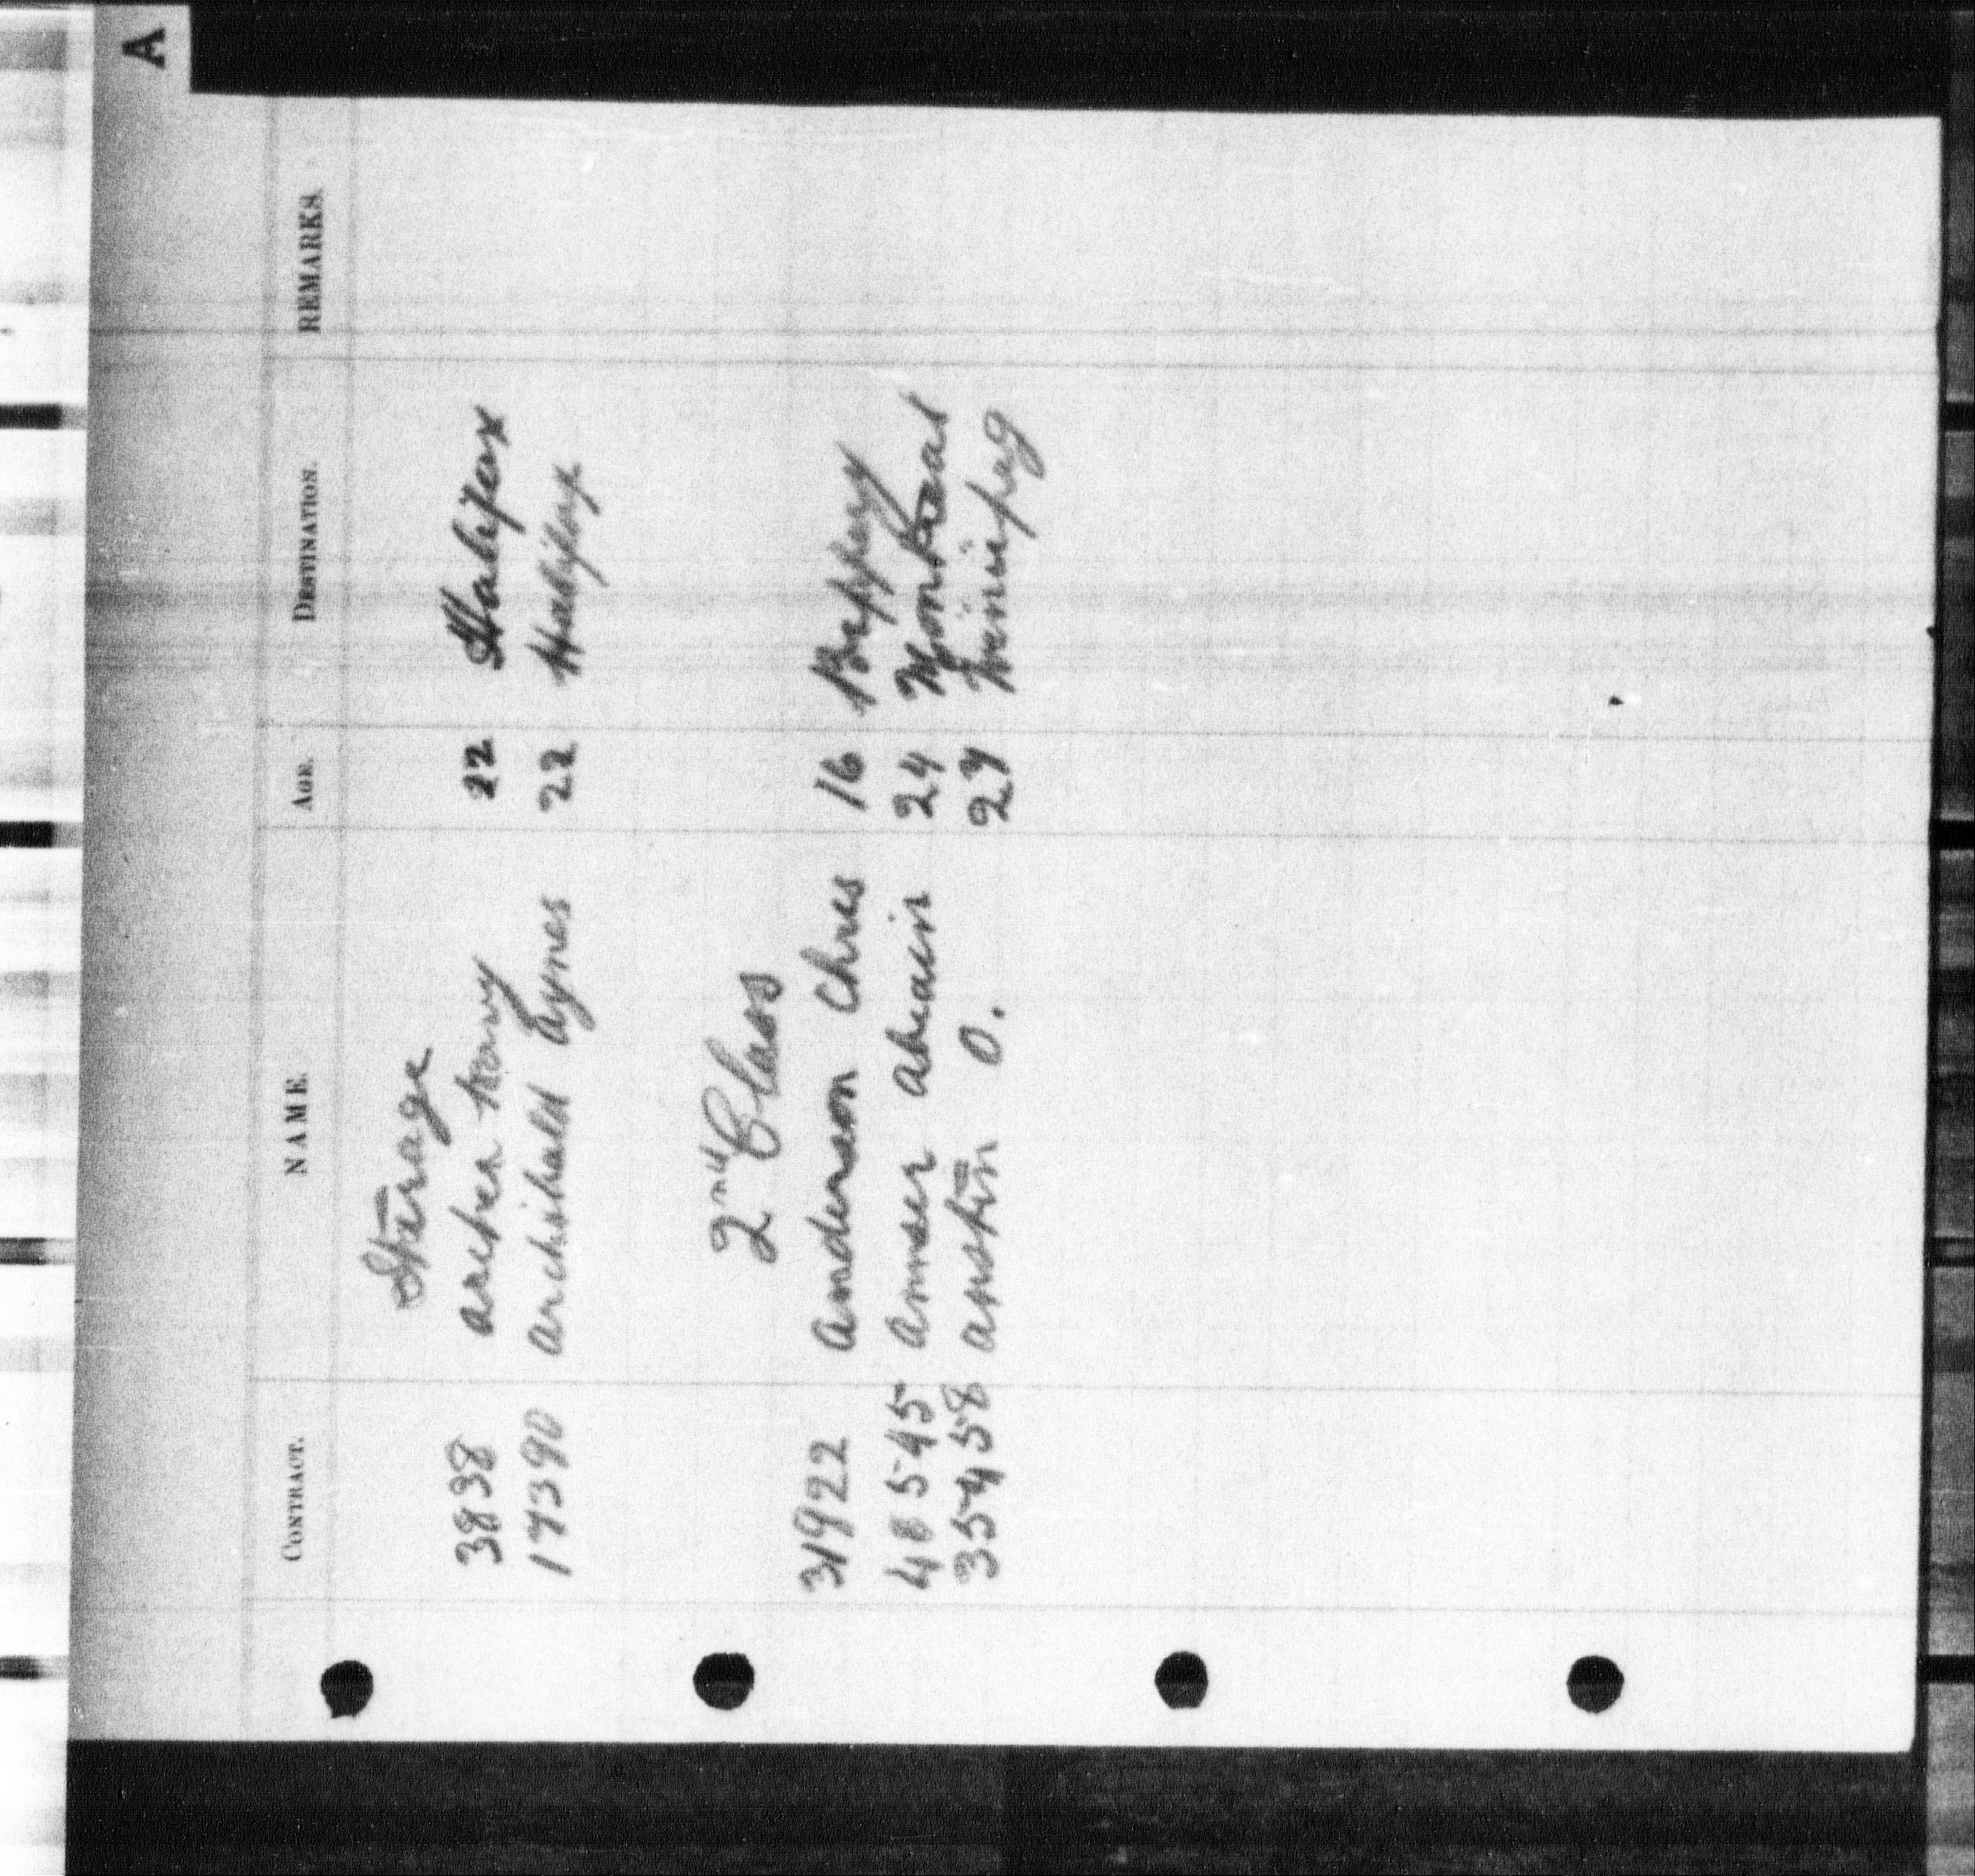 A
CONTRACT. NAME. AGE. DESTINATION. REMARKS.
Sterage
3838 22 Halifax
17390 Archibald Agnes 22 Halifax
2nd Class
31922 Anderson Chres 16
48545 24 Montreal
35458 Austin O. 27 Winnipeg